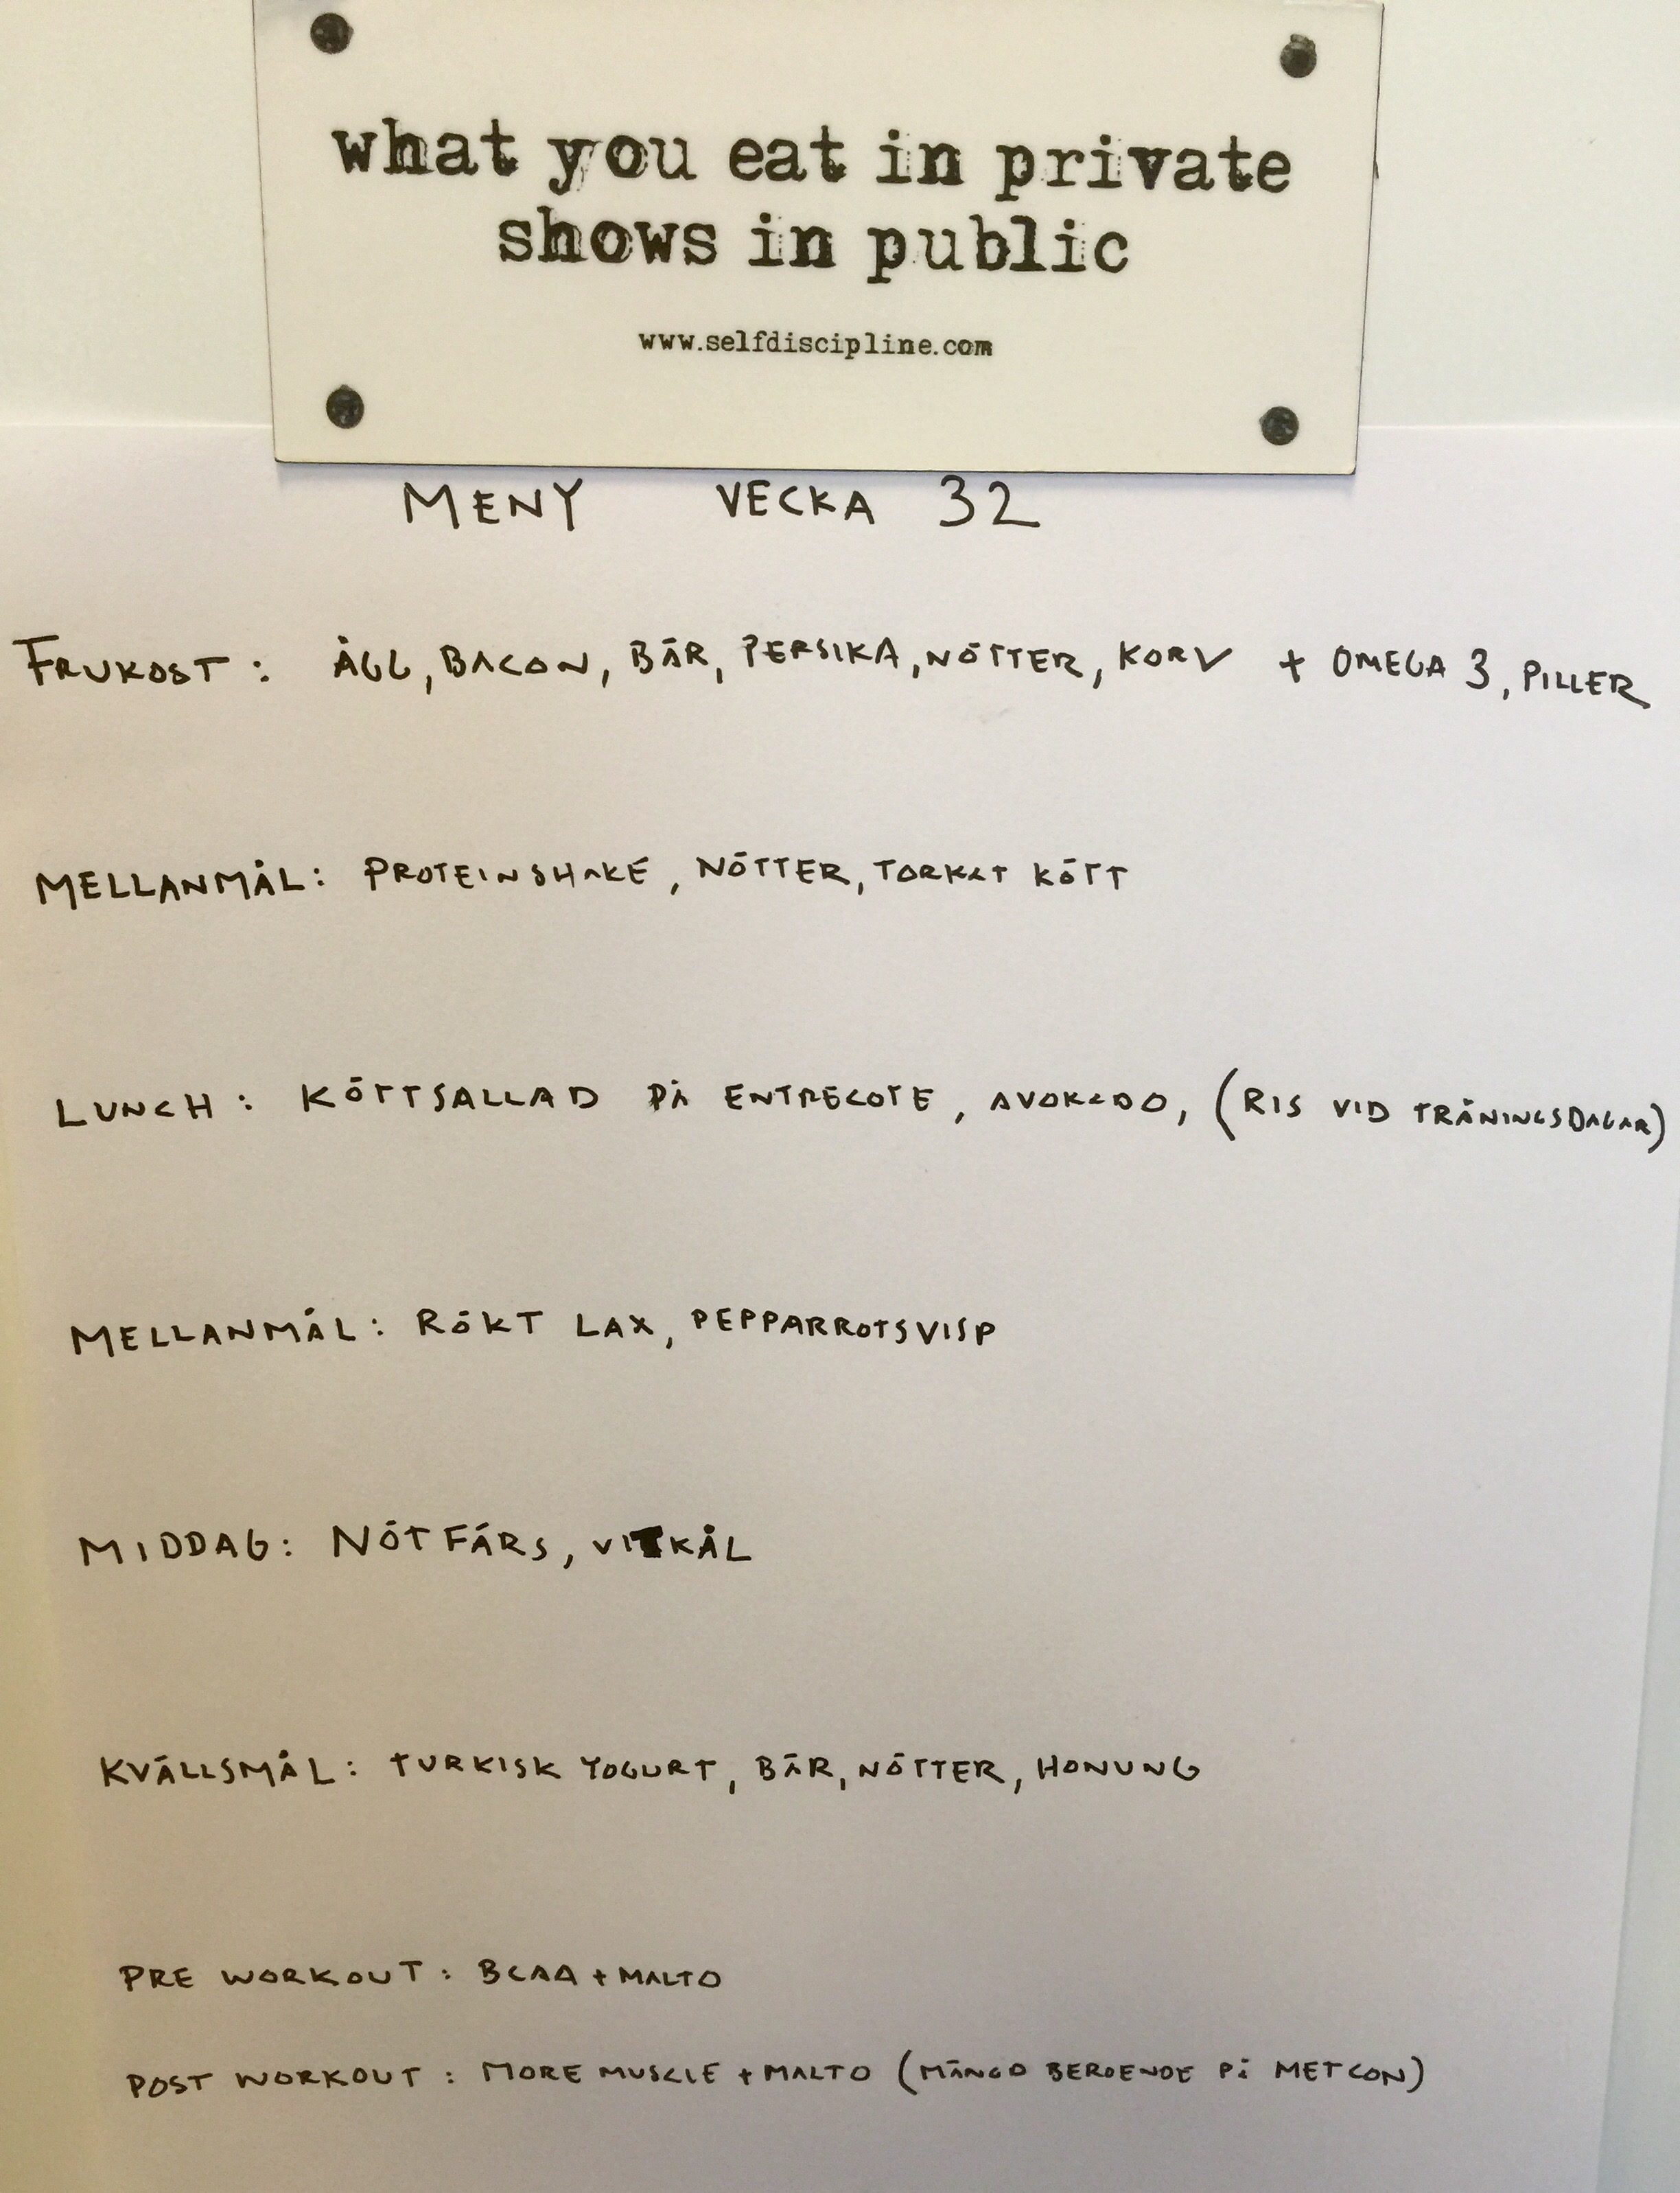 what you eat in private
shows in public
www.selfdiscipline.com
MENY VECKA 32
FRUKOST: ÄGG, BACON, BÄR, PERSIKA, NÖTTER, KORV + OMEGA 3, PILLER
MELLANMÅL: PROTEINSHAKE, NÖTTER, TORKAT KÖTT
LUNCH: KÖTTSALLAD PÅ ENTRECOTE, AVOKADO, (RIS VID TRÄNINGSDAGAR)
MELLANMÅL: RÖKT LAX, PEPPARROTSVISP
MIDDAG: NÖTFÄRS, VITKÅL
KVÄLLSMÅL: TURKISK YOGURT, BÄR, NÖTTER, HONUNG
PRE WORKOUT: BCAA + MALTO
POST WORKOUT: MORE MUSCLE + MALTO (MÄNGD BEROENDE PÅ METCON)